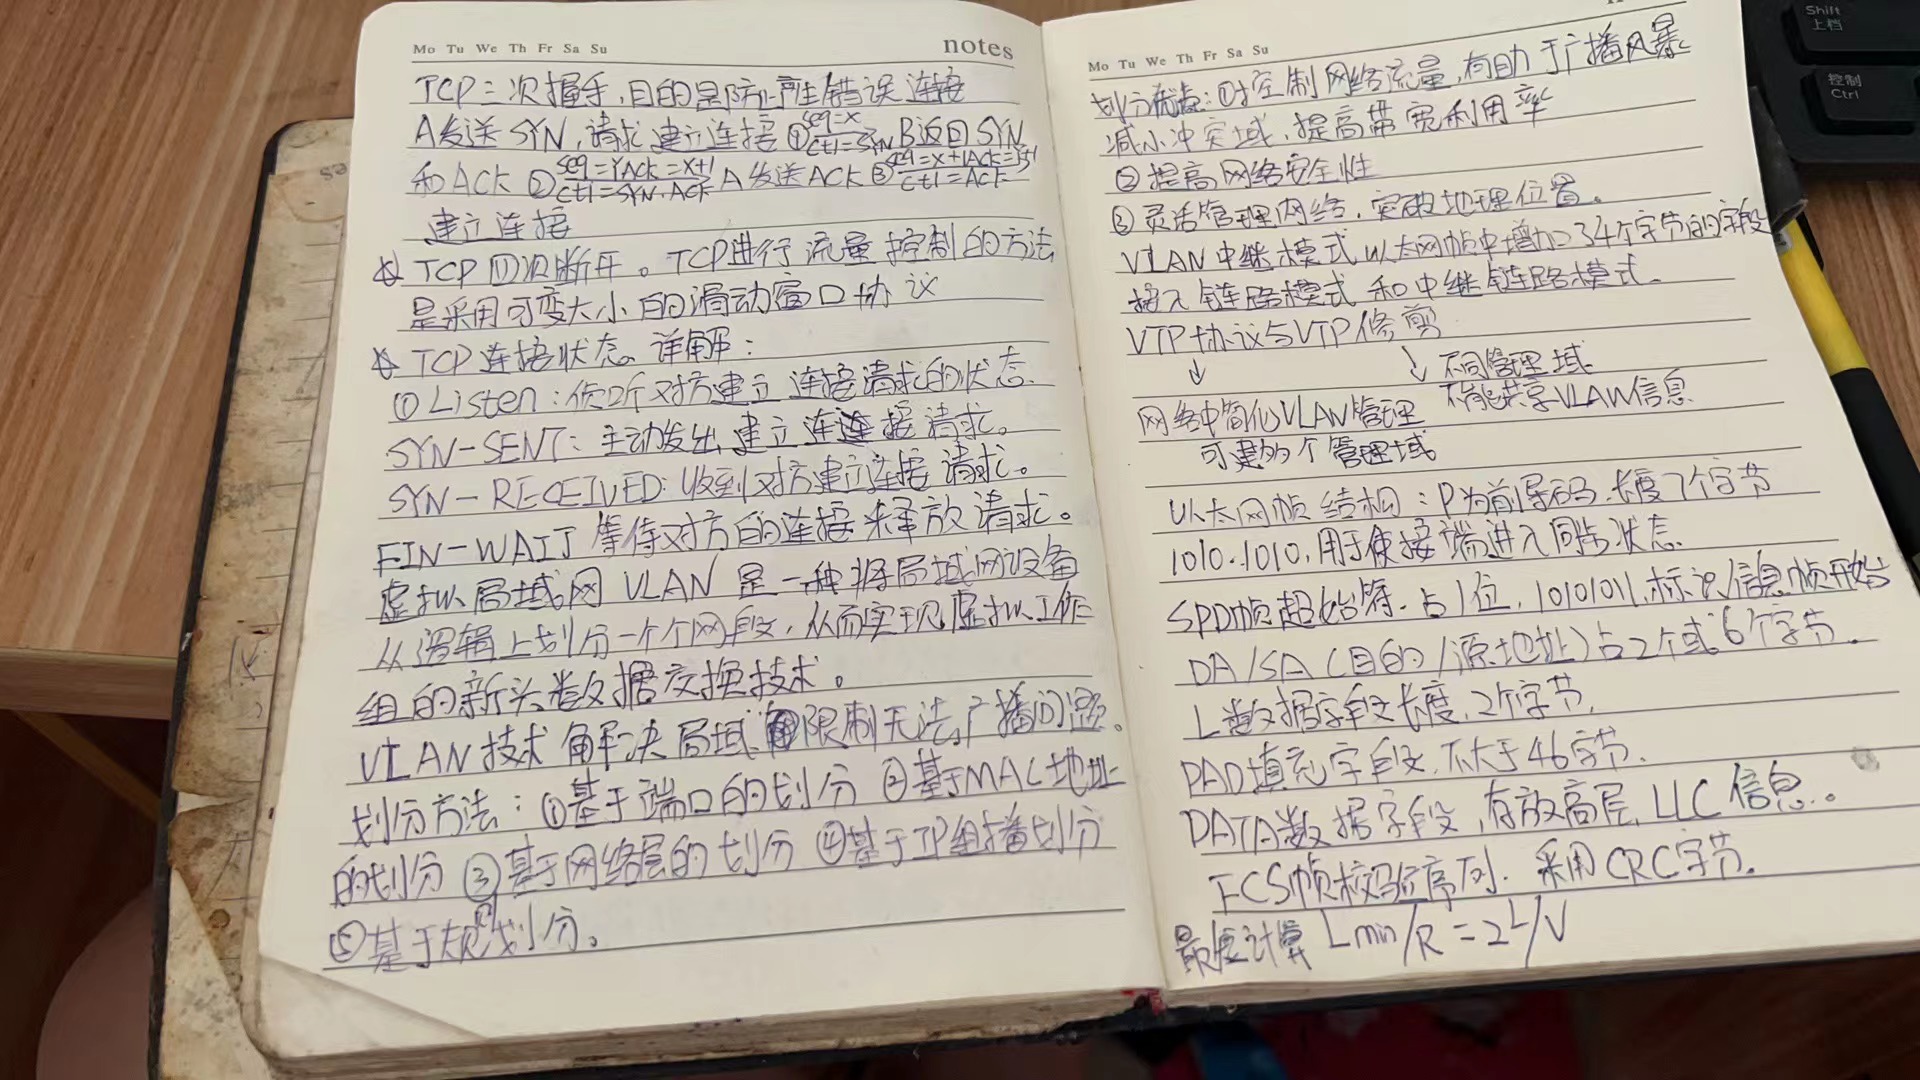 Mo Tu We Th Fr Sa Su
notes
TCP三次握手,目的是防止产生错误连接
A发送SYN,请求建立连接 ① seq=x ctl=SYN B返回SYN
和ACK ② seq=Y ACK=X+1 ctl=SYN.ACK A发送ACK ③ seq=x+1 ACK=y+1 ctl=ACK
建立连接
TCP四次断开。TCP进行流量控制的方法
是采用可变大小的滑动窗口协议
TCP连接状态详解:
① Listen:侦听对方建立连接请求的状态.
SYN-SENT:主动发出建立连连接请求。
SYN-RECEIVED:收到对方建立连接请求。
FIN-WAIT 等待对方的连接释放请求。
虚拟局域网 VLAN 是一种将局域网设备
从逻辑上划分一个个网段,从而实现虚拟工作
组的新头数据交换技术。
VLAN技术 解决局域 限制无法广播问题。
划分方法:①基于端口的划分 ②基于MAC地址
的划分 ③基于网络层的划分 ④基于IP组播划分
⑤基于规则划分。
Mo Tu We Th Fr Sa Su
划分优点:①控制网络流量,有助于广播风暴
减小冲突域,提高带宽利用率
②提高网络安全性
③灵活管理网络,突破地理位置。
VLAN中继模式 以太网帧中增加了4个字节的字段
接入链路模式 和中继链路模式.
VTP协议与VTP修剪
↓ ↓ 不同管理域
网络中简化VLAN管理 不能共享VLAN信息
可建多个管理域
以太网帧结构:P为前导码.长度7个字节
1010..1010,用于使接端进入同步状态
SPD帧起始符.占1位,10101011.标识信息帧开始
DA/SA(目的/源地址)占2个或6个字节.
L数据字段长度,2个字节.
PAD填充字段.不大于46字节.
DATA数据字段,存放高层LLC信息..
FCS帧校验序列.采用CRC字节.
最短计算 Lmin/R = 2L/V
Shift
上档
控制
Ctrl